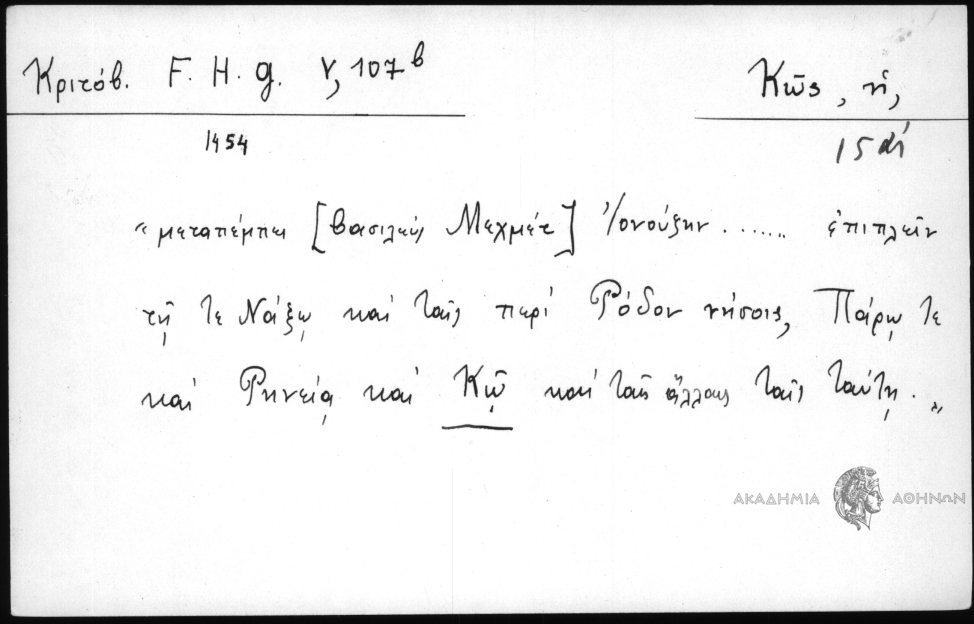 Κριτόβ. F. H. g. V, 107 β
Κῶς, ἡ,
1454
15 αἱ
“ μεταπέμπει [βασιλεὺς Μεχμέτ] Ἰονούζην ....... ἐπιπλεῖν
τῇ τε Νάξῳ καὶ ταῖς περὶ Ῥόδον νήσοις, Πάρῳ τε
καὶ Ῥηνείᾳ καὶ Κῷ καὶ ταῖς ἄλλαις ταῖς ταύτῃ. „
ΑΚΑΔΗΜΙΑ ΑΘΗΝΩΝ